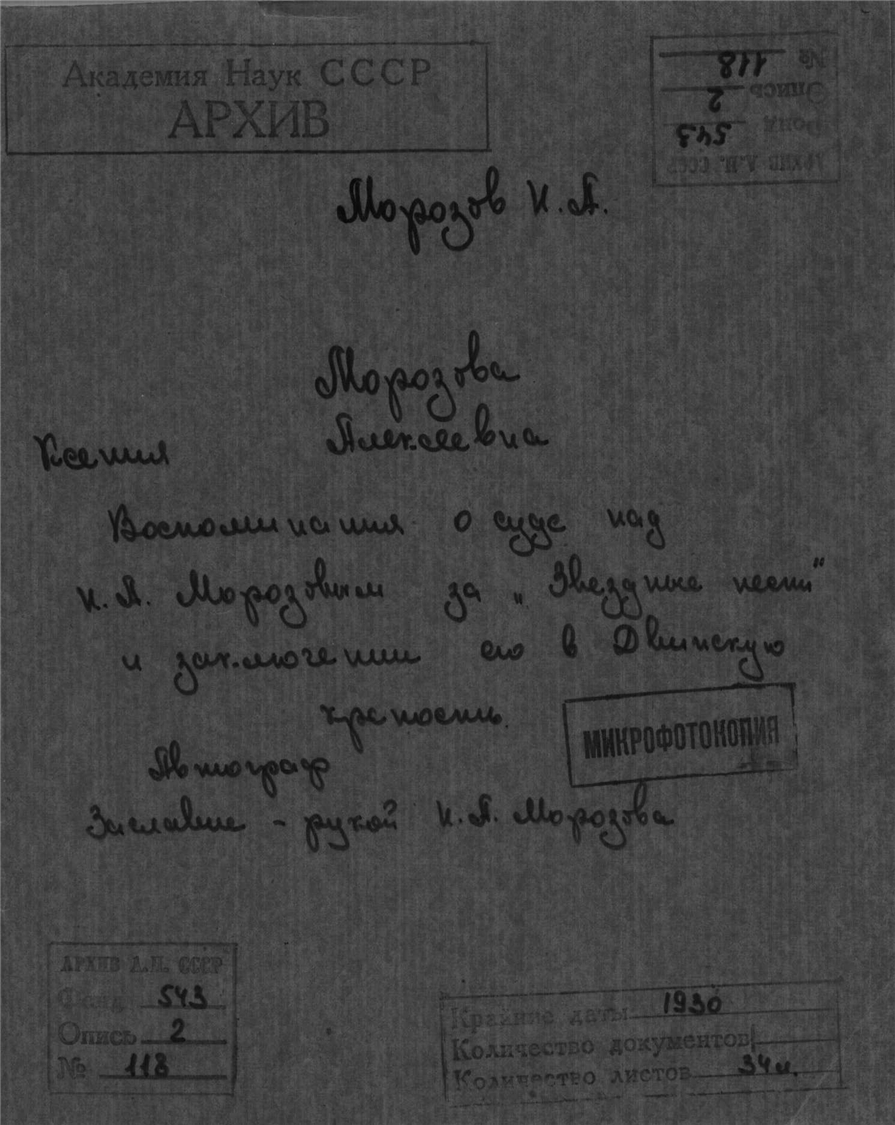 Академия Наук СССР
АРХИВ
АРХИВ А.Н. СССР
Фонд 543
Опись 2
№ 118
Морозов Н. А.
Морозова
Ксения Алексеевна
Воспоминания о суде над
Н. А. Морозовым за „Звездные песни"
и заключении его в Двинскую
крепость.
МИКРОФОТОКОПИЯ
Автограф
Заглавие - рукой Н. А. Морозова
АРХИВ А.Н. СССР
Фонд 543
Опись 2
№ 118
Крайние даты 1930
Количество документов
Количество листов 34 л.